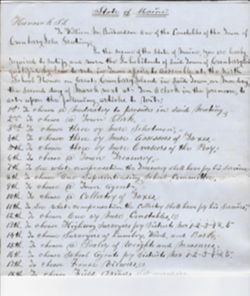 State of Maine
Hancock SS.
To William M. Richardson One of the Constables of the Town of
Cranberry Isles Greeting
In the name of the State of Maine, you are hereby
required to notify and warn the Inhabitants of said Town of Cranberry Isles
qualified by law to vote in Town affairs to Assemble at the North
School House on Great Cranberry Island in said Town on Monday
the second day of March next at Ten O'clock in the forenoon, to
act upon the following articles to wit;
1st To choose a Moderator to preside in said Meeting
2nd To choose a Town Clerk,
3rd To choose three or more Selectmen,
4th To choose three or more Assessors of Taxes,
5th To choose three or more Overseers of the Poor,
6th To choose a Town Treasurer,
7th To see what compensation the Treasurer shall have for his services
8th To choose One Superintending School Committee,
9th To choose a Town Agent,
10th To choose a Collector of Taxes,
11th To see what compensation the Collector shall have for his services,
12th To choose One or more Constables,
13th To choose Highway Surveyors for Districts Nos 1-2-3-4-5
14th To choose Surveyors of Lumber, Wood and Bark,
15th To choose a Sealer of Weights and Measures,
16th To choose School Agents for Districts Nos 1-2-3-4-5
17th To choose Fence Viewers,
18th To choose Field Drivers